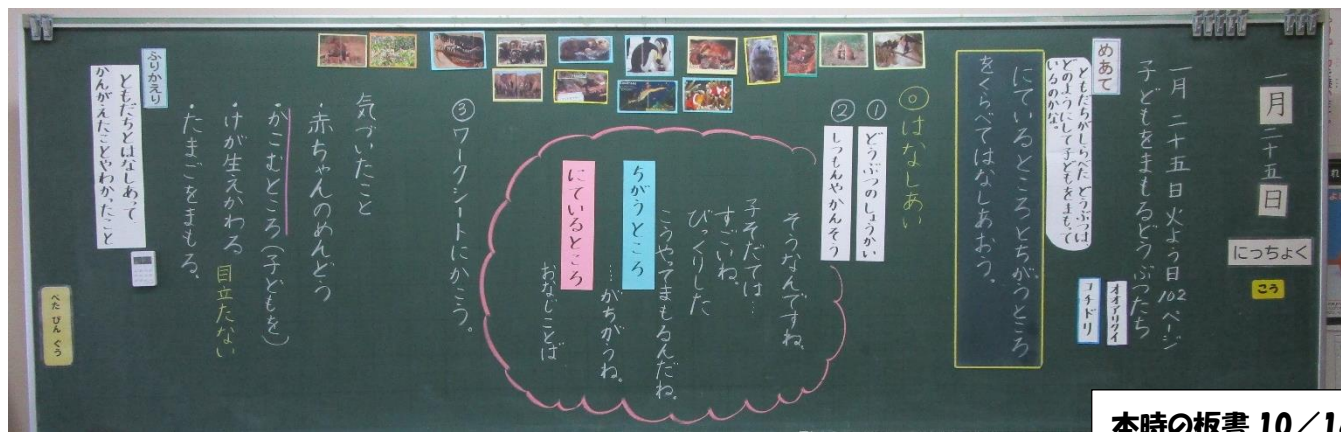 一月二十五日
にっちょく
こう
一月二十五日火よう日102ページ
子どもをまもるどうぶつたち
オオアリクイ
コチドリ
めあて
ともだちがしらべたどうぶつは
どのようにして子どもをまもって
いるのかな。
にているところとちがうところ
をくらべてはなしあおう。
◎はなしあい
①どうぶつのしょうかい
②しつもんやかんそう
そうなんですね。
子そだては…
すごいね。
びっくりした
こうやってまもるんだね。
ちがうところ
…がちがうね。
にているところ
おなじことば
③ワークシートにかこう。
気づいたこと
・赤ちゃんのめんどう
・かこむところ(子どもを)
・けが生えかわる 目立たない
・たまごをまもる。
ふりかえり
ともだちとはなしあって、
かんがえたことやわかったこと
ぺた ぴん ぐう
本時の板書 10/1